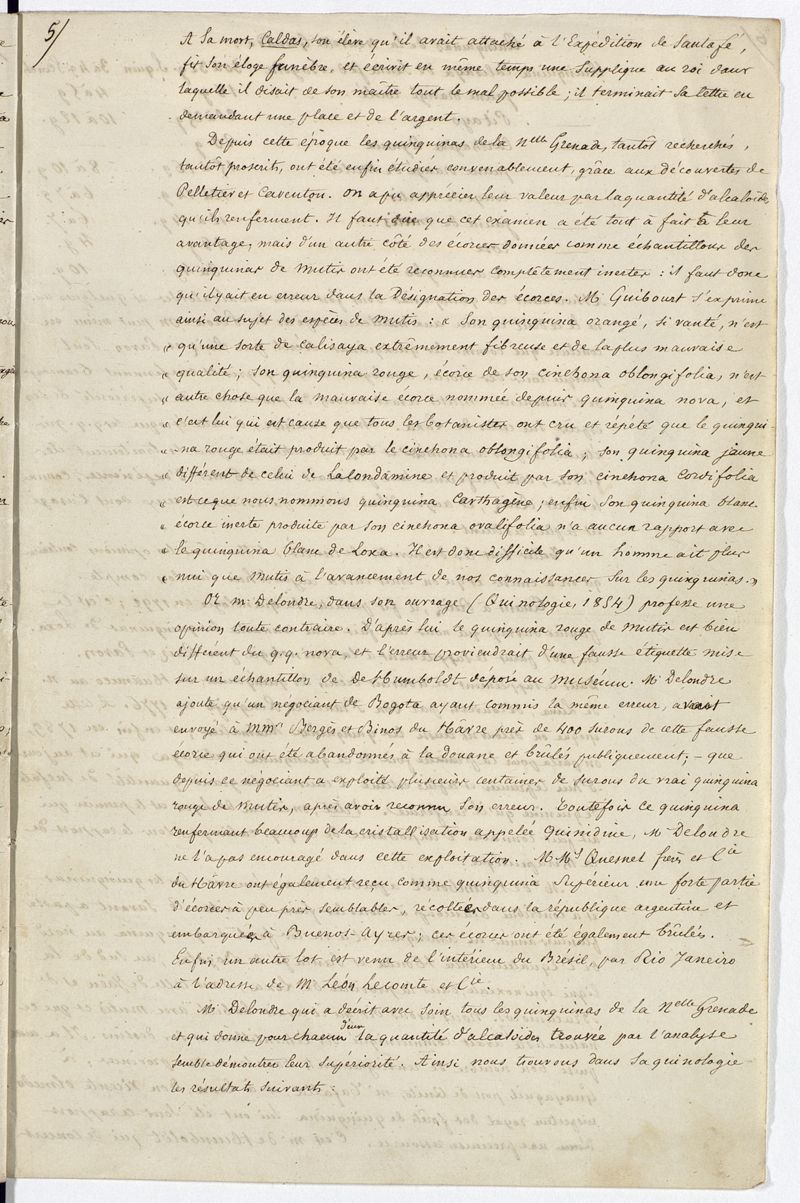 5/
A sa mort, Caldas, son élève qu'il avait attaché à l'Expédition de Santafé,
fit son éloge funèbre, et écrivit en même temps une supplique au roi dans
laquelle il disait de son maître tout le mal possible ; il terminait sa lettre en
demandant une place et de l'argent.
Depuis cette époque les quinquinas de la Nelle Grenade, tantôt recherchés,
tantôt proscrits, ont été enfin étudiés convenablement, grâce aux découvertes de
Pelletier et Caventou. On a pu apprécier leur valeur par la quantité d'alcaloïdes
qu'ils renferment. Il faut dire que cet examen a été tout à fait à leur
avantage, mais d'un autre côté des écorces données comme échantillons des
quinquinas de Mutis ont été reconnues complètement inertes : il faut donc
qu'il y ait eu erreur dans la Désignation des écorces. Mr Guibourt s'exprime
ainsi au sujet des espèces de Mutis : « Son quinquina orangé, si vanté, n'est
« qu'une sorte de calisaya extrêmement fibreuse et de la plus mauvaise
« qualité ; son quinquina rouge, écorce de son cinchona oblongifolia, n'est
« autre chose que la mauvaise écorce nommée depuis quinquina nova, et
« c'est lui qui est cause que tous les botanistes ont cru et répété que le quinqui-
« -na rouge était produit par le cinchona oblongifolia ; son quinquina jaune
« différent de celui de Lalondamine et produit par son cinchona cordifolia
« est ce que nous nommons quinquina Carthagène ; enfin son quinquina blanc
« écorce inerte produite par son cinchona ovalifolia n'a aucun rapport avec
« le quinquina blanc de Loxa. Il est donc difficile qu'un homme ait plus
« nui que Mutis à l'avancement de nos connaissances sur les quinquinas. »
Or Mr Delondre, dans son ouvrage (Quinologie, 1854) professe une
opinion toute contraire. D'après lui le quinquina rouge de Mutis est bien
différent du q.q. nova, et l'erreur proviendrait d'une fausse étiquette mise
sur un échantillon de De Humboldt déposé au muséum. Mr Delondre
ajoute qu'un négociant de Bogota ayant commis la même erreur, avait
envoyé à MMrs Bergès et Binos du Hâvre près de 400 surons de cette fausse
écorce qui ont été abandonnés à la douane et brûlés publiquement ; - que
depuis ce négociant a exploité plusieurs centaines de surons du vrai quinquina
rouge de Mutis, après avoir reconnu son erreur. Toutefois ce quinquina
renfermant beaucoup de la cristallisation appelée Quinidine, Mr Delondre
ne l'a pas encouragé dans cette exploitation. M.Mrs Quesnel frères et Cie
du Hâvre ont également reçu comme quinquina supérieur une forte partie
d'écorces à peu près semblables, récoltées dans la république argentine et
embarquées à Buenos-Ayres ; ces écorces ont été également brûlés.
Enfin un autre lot est venu de l'intérieur du Brésil, par Rio Janeiro
à l'adresse de Mr Léon Lecomte et Cie.
Mr Delondre qui a décrit avec soin tous les quinquinas de la Nelle Grenade
et qui donne pour chacun d'eux la quantité d'alcaloïdes trouvée par l'analyse
semble démontrer leur supériorité. Ainsi nous trouvons dans sa quinologie
les résultats suivants :